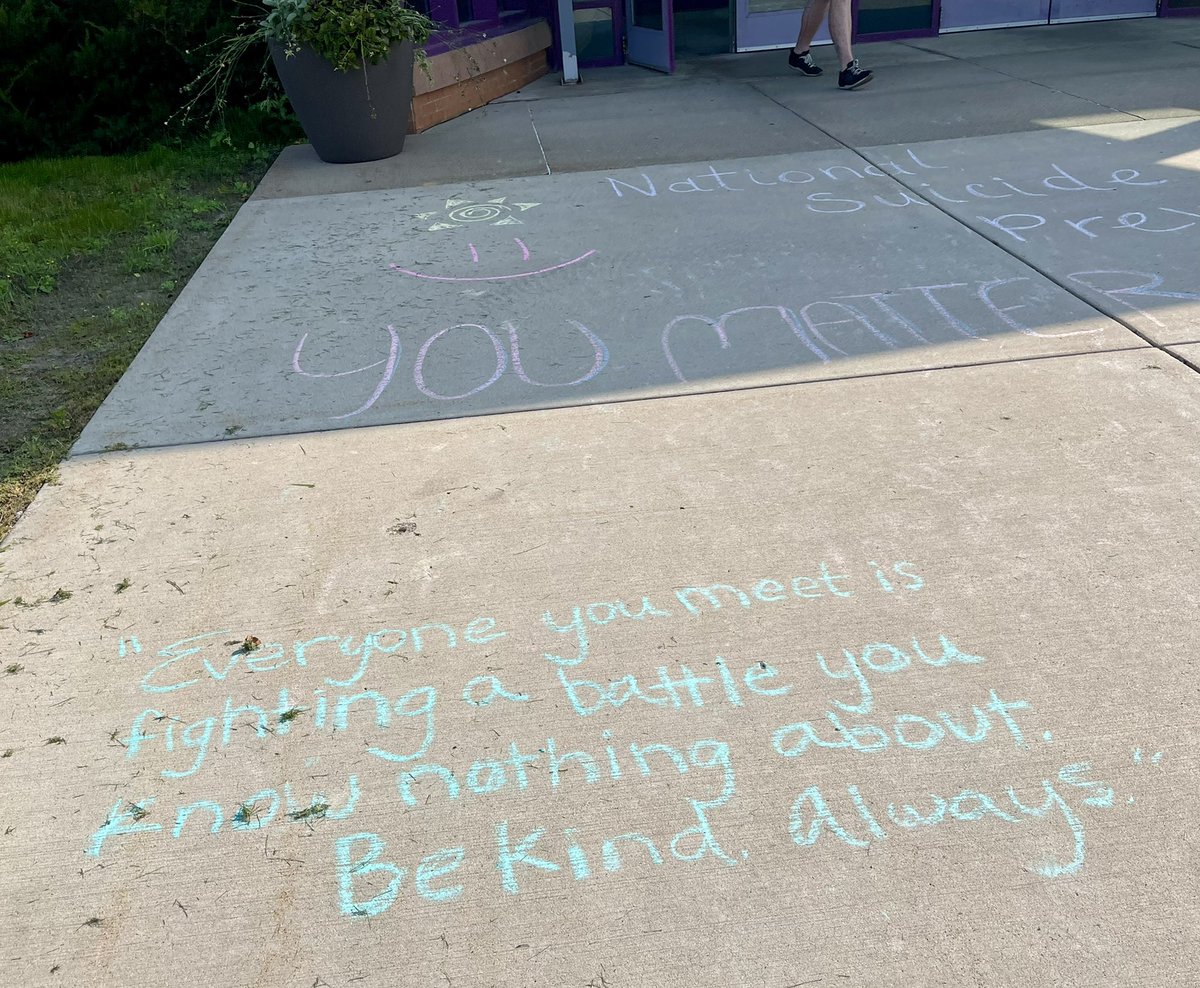 National
Suicide
prev
YOU MATTER
"Everyone you meet is
fighting a battle you
know nothing about.
Be kind. Always."